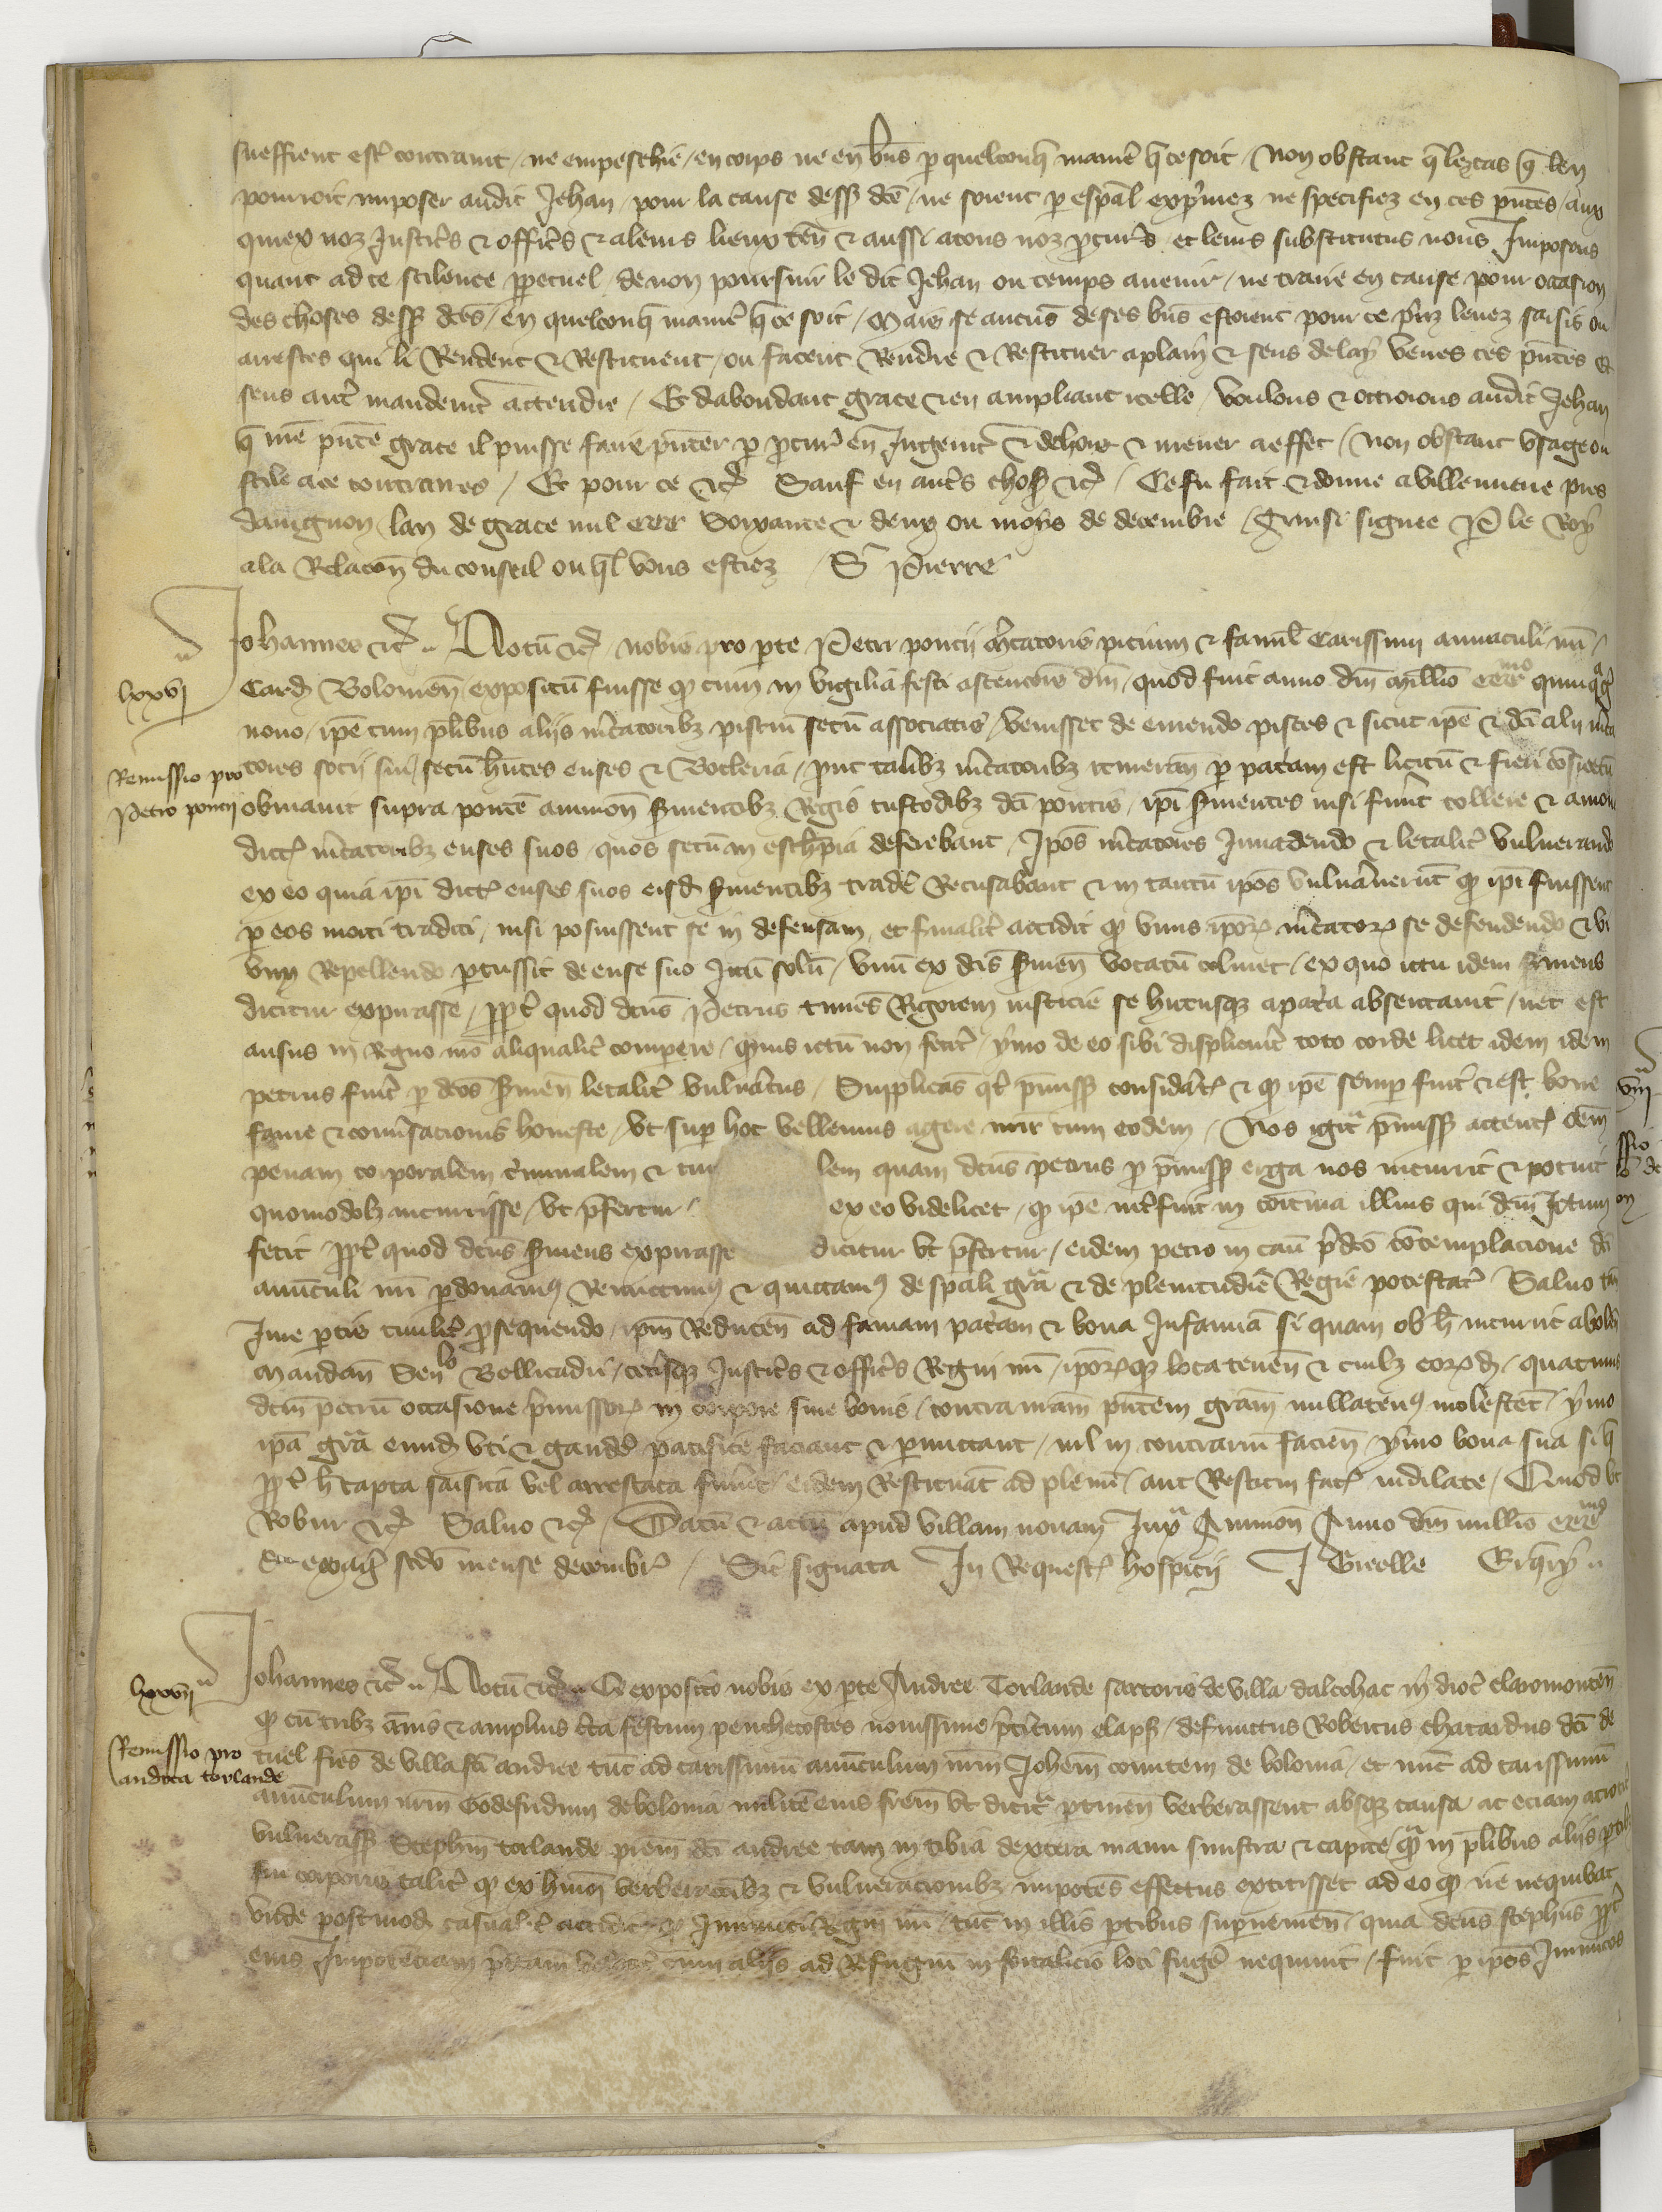 sueffient estre contraint / ne empeschie / en corps ne en biens par quelconque maniere que ce soit / Non obstant que les cas que len
pourroit imposer audit Jehan / pour la cause dessus dicte / ne soient par especial exprimez ne specifiez en ces presentes / aux
quiex noz Justiciers & officiers & a leurs lieux tenans & aussi a touz noz procureurs / et leurs substitutus nous Imposons
quant ad ce scilence perpetuel / de non poursuir le dit Jehan ou temps avenir / ne traire en cause pour occasion
des choses dessus dictes / en quelconque maniere que ce soit / Mais se aucuns de ses biens estoient pour ce prins levez saisis ou
arrestes qui li Rendent & Restituent / ou facent Rendre & Restituer a plain & sens delay veues ces presentes Et
sens autre mandement attendre / Et dabondant grace & en ampliant icelle / voulons & octroions audit Jehan
que ceste presente grace il puisse faire presenter par procureur en Jugement & dehors & mener a effet / Non obstant usage ou
stile a ce contraires / Et pour ce &c Sauf en autres choses &c / Ce fu fait & donne a Villenueve pres
davignon / lan de grace mil ccc soixante & deux ou moys de decembre / Ainsi signee Par le Roy
a la Relacion du conseil ou quel vous estiez / S Pierre
Johannes &c Notum &c / nobis pro parte Petri poncii mercatoris piscium & famil Carissimi avunculi nostri /
lxxvi
Card Bolonien / expositum fuisse quod cum in vigilia festi ascencionis domini / quod fuit anno domini millesimo ccc mo quinquag
nono / ipse cum pluribus aliis mercatoribus piscium secum associatis / venisset de emendo pisces & sicut ipse & dicti alii merca
Remissio pro
Petro poncii
tores socii sui / secum habentes enses & Bocleria / prout talibus mercatoribus itineran per patriam est licitum & fieri consuetum
obviavit supra pontem avinion servientibus Regis custodibus dicti pontis / ipsi servientes nisi fuerunt tollere & amov
dictis mercatoribus enses suos / quos secum in escharpia deferebant / Ipsos mercatores Invadendo & letaliter vulnerando
ex eo quia ipsi dictos enses suos eisdem servientibus tradere Recusabant & in tantum ipsos vulneraverunt quod ipsi fuissent
per eos morti traditi / nisi posuissent se in defensam / et finaliter accidit quod unus ipsorum mercatorum se defendendo & vi
vim Repellendo percussit de ense suo Ictu solum / unum ex dictis servien vocatum colinet / ex quo ictu idem serviens
dicitur expirasse / propter quod dictus Petrus timens Rigorem iusticie se hucusque a patria absentavit / nec est
ausus in Regno nostro aliqualiter comparere / quamvis ictum non fecerit / ymo de eo sibi displicuerit toto corde licet idem idem
petrus fuerit per dictos servien letaliter vulneratus / Supplicans quod premissis consideratis & quod ipse semper fuit & est bone
fame & conversacionis honeste / ut super hoc vellemus agere misericorditer cum eodem / Nos igitur premissis attentis omnem
penam corporalem criminalem & civi lem quam dictus petrus pro premissis erga nos incurrit & potuit
quomodolibet incurrisse / ut prefertur / ex eo videlicet / quod ipse nec fuit in comitiva illius qui dictum Ictum
fecit / propter quod dictus serviens expirasse dicitur ut prefertur / eidem petro in casu predicto contemplacione dicti
avunculi nostri perdonamus Remittimus & quittamus de speciali gracia & de plenitudine Regie potestatis Salvo tamen
Jure partis civiliter prosequendo / ipsum Reducen ad famam patriam & bona Infamiam si quam ob hoc incurrit abolen
Mandan Senescallo Bellicadri / ceterisque Justiciariis & officiariis Regni nostri / ipsorumque locatenen & cuilibet eorumdem / quatinus
dictum petrum occasione premissorum in corpore sive bonis / contra nostram presentem graciam nullatenus molestent / ymo
ipsa gracia eundem uti & gaudere pacifice faciant & permittant / nil in contrarium facien / ymo bona sua si que
propter hoc capta saisita vel arrestata fuerint / eidem Restituant ad plenum / aut Restitui faciant indilate / Quod ut
Robur &c Salvo &c / Datum & actum apud Villam novam Juxta Avinion Anno domini millesimo ccc mo
sexag secundo mense decembris / Sic signata In Requestis hospicii J Greelle
Johannes &c Notum &c Cum exposito nobis ex parte Andree Torlande sartoris de villa dalcohac in dioc claromonten
lxxvii
quod cum tribus annis & amplius circa festum penthecostes novissime preteritum elapsis / defunctus Robertus chatardus dictus de
Remissio pro
andrea torlande
tuel fres de villa sancti andree tunc ad carissimum avunculum nostrum Johannem comitem de bolonia / et nunc ad carissimum
avunculum nostrum Godefridum de bolonia militem eius fratrem ut dicitur pertinen verberassent absque causa ac eciam atrociter
vulnerassent Stephanum torlande patrem dicti andree tam in tibia dextera manu sinistra & capite / quam in pluribus aliis partibus
sui corporis taliter quod ex huiusmodi verberacionibus & vulneracionibus impotens effectus extitisset ad eo quod ire nequibat
unde postmodum casualiter accidit quod Inimici Regni nostri / tunc in illis partibus supervenien / quia dictus stephanus propter
eius Impotenciam predictam cum aliis ad Refugium in fortalicio loci fugere nequivit / fuit per ipsos Inimicos